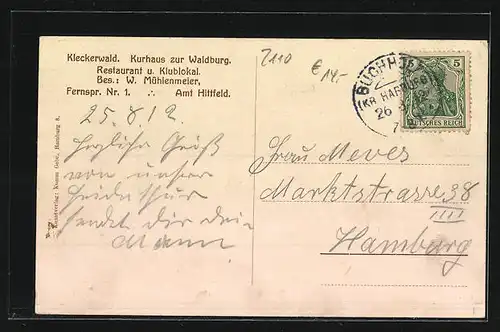 Kleckerwald. Kurhaus zur Waldburg.
Restaurant u. Klublokal.
Bes.: W. Mühlenmeier,
Fernspr. Nr. 1. ∴ Amt Hittfeld.
7110
€ 14.-
BUCHHOLZ
(KR HARBURG)
26
5
DEUTSCHES REICH
25.8.12.
Herzliche Grüße
von unser
sendet Dir Dein
Mann
Frau Meves
Marktstrasse 38
IIII
Hamburg